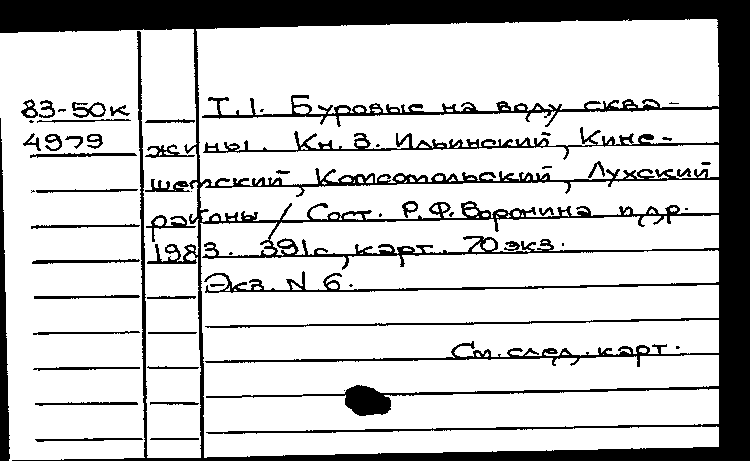 83-50к Т.1. Буровые на воду сква-
4979 жины. Кн. 3. Ильинский, Кине-
шемский, Комсомольский, Лухский
районы / Сост. Р.Ф. Воронина и др.
1983. 391 с., карт. 70 экз.
Экз. N 6.
См. след. карт.